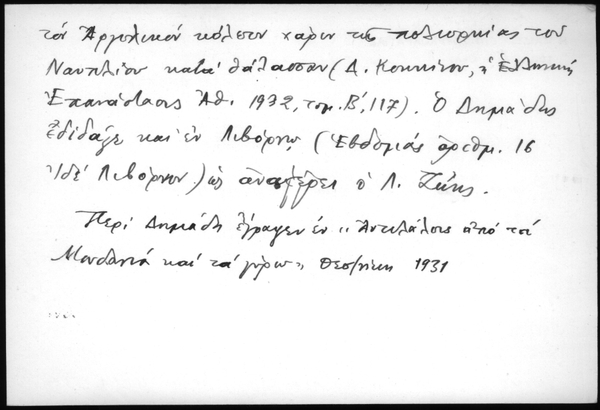 τόν Ἀργολικόν κόλπον χάριν τῆς πολιορκίας τοῦ
Ναυπλίου κατά θάλασσαν (Δ. Κοκκίνου, ἡ Ἑλληνική
Ἐπανάστασις Ἀθ. 1932, τομ. Β', 117). Ὁ Δημιάδης
ἐδίδαξε και ἐν Λιβόρνῳ (Ἑβδομάς ἀριθμ. 16
Ἰδέ Λιβόρνον) ὡς ἀναφέρει ὁ Λ. Ζώης.
Περί Δημιάδη ἔγραψεν ἐν "Ἀντίλαλοις ἀπό τά
Μουδανιά καί τά γύρω" Θεσ/νίκη 1931